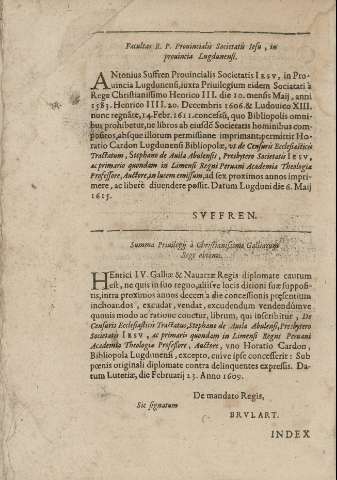 Facultas R. P. Prouincialis Societatis Iesu, in
prouincia Lugdunensi.
ANtonius Suffren Prouincialis Societatis IESV, in Pro-
uincia Lugdunensi, iuxta Priuilegium eidem Societati à
Rege Christianissimo Henrico III. die 10. mensis Maij, anni
1583. Henrico IIII. 20. Decembris 1606. & Ludouico XIII.
nunc regnāte, 14. Febr. 1611. concessū, quo Bibliopolis omni-
bus prohibetur, ne libros ab eiusdē Societatis hominibus com-
positos, absque illorum permissione imprimant: permittit Ho-
ratio Cardon Lugdunensi Bibliopolæ, vt de Censuris Ecclesiasticis
Tractatum, Stephano de Auila Abulensi, Presbytero Societatis IESV,
ac primario quondam in Limensi Regni Peruani Academia Theologiæ
Professore, Auctore, in lucem emissum, ad sex proximos annos impri-
mere, ac liberè diuendere possit. Datum Lugduni die 6. Maij
1615.
SVFFREN.
Summa Priuilegij à Christianissimo Galliarum
Rege obtenti.
HEnrici IV. Galliæ & Nauarræ Regis diplomate cautum
est, ne quis in suo regno, aliisve locis ditioni suæ subpposi-
tis, intra proximos annos decem à die concessionis præsentium
inchoandos, excudat, vendat, excudendum vendendúmve
quouis modo ac ratione conetur, librum, qui inscribitur, De
Censuris Ecclesiasticis Tractatus, Stephano de Auila Abulensi, Presbytero
Societatis IESV, ac primario quondam in Limensi Regni Peruani
Academia Theologiæ Professore, Auctore, vno Horatio Cardon,
Bibliopola Lugdunensi, excepto, cuive ipse concesserit: Sub
pœnis originali diplomate contra delinquentes expressis. Da-
tum Lutetiæ, die Februarij 23. Anno 1609.
De mandato Regis,
Sic signatum
BRVLART.
INDEX